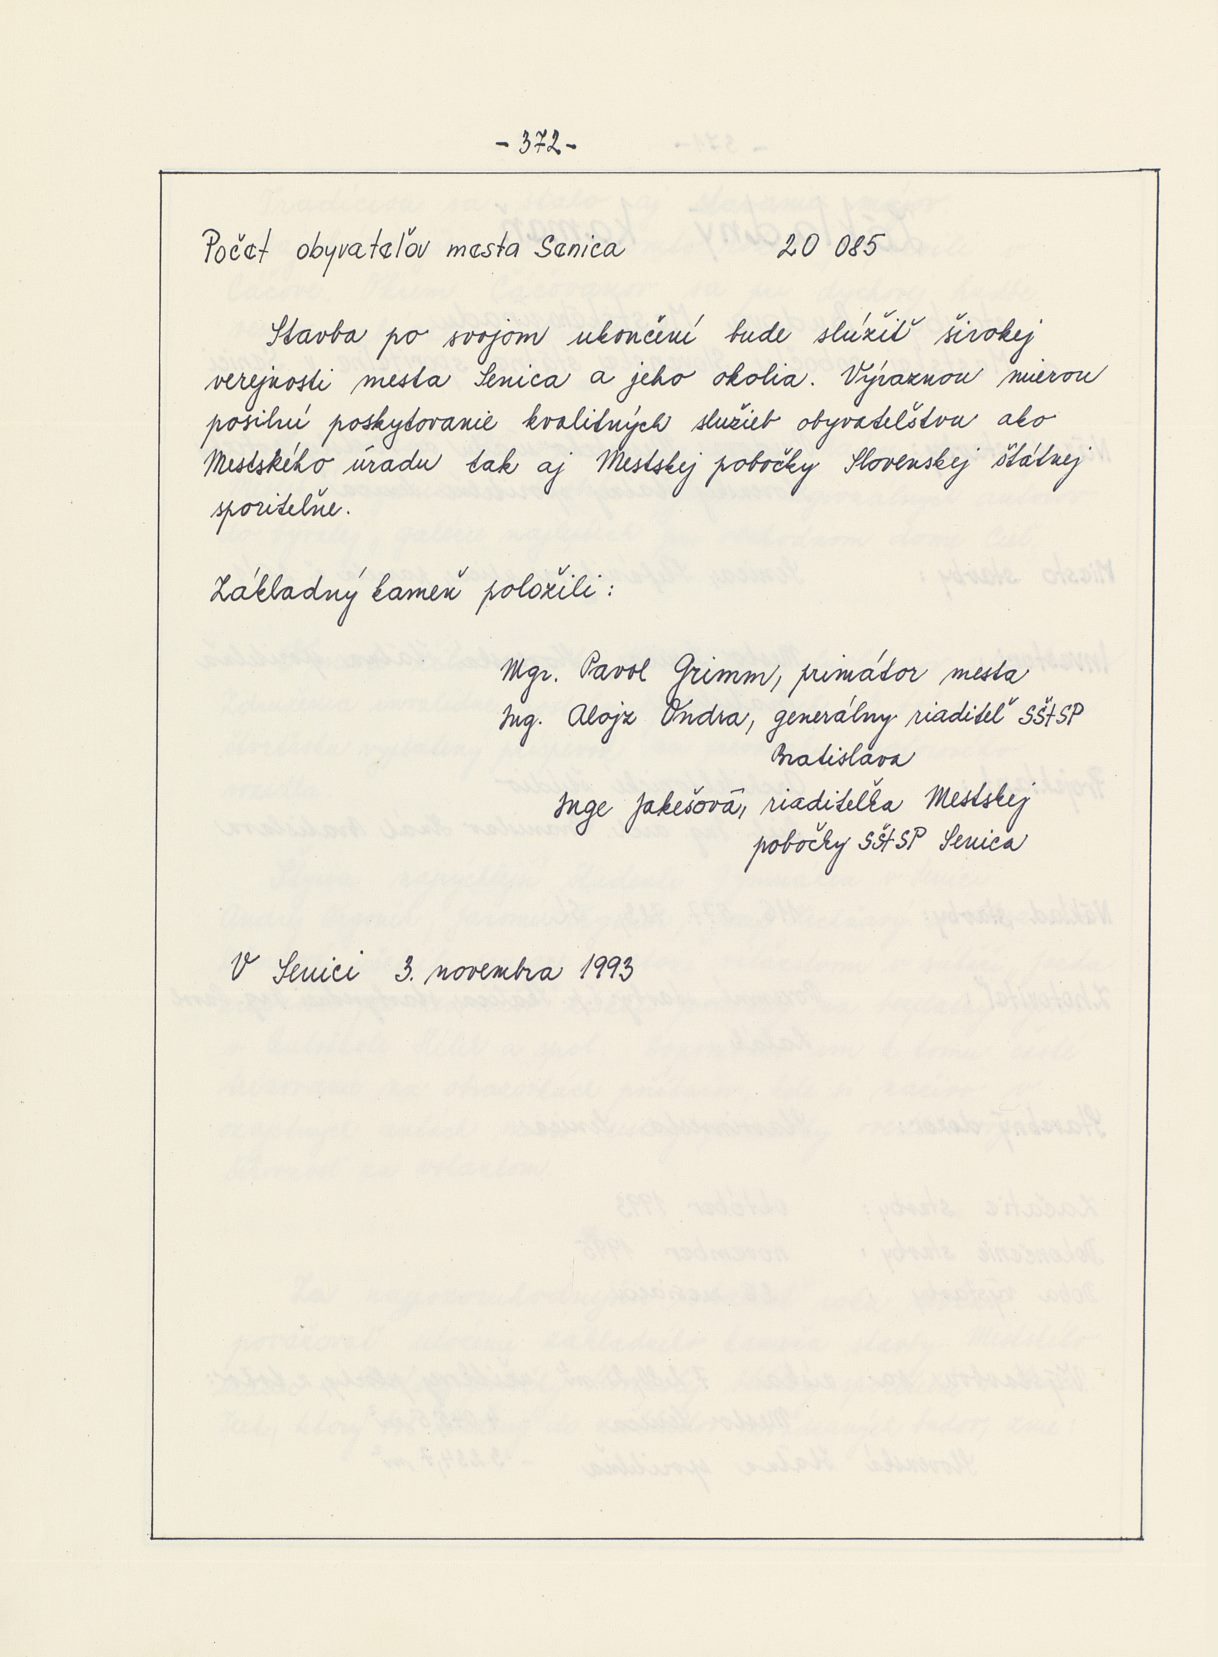 - 372 -
Počet obyvateľov mesta Senica 20 085
Stavba po svojom ukončení bude slúžiť širokej
verejnosti mesta Senica a jeho okolia. Výraznou mierou
posilní poskytovanie kvalitných služieb obyvateľstvu ako
Mestského úradu tak aj Mestskej pobočky Slovenskej štátnej
sporiteľne.
Základný kameň položili:
Mgr. Pavol Grimm, primátor mesta
Ing. Alojz Ondra, generálny riaditeľ SŠtSP
Bratislava
Inge Jakešová, riaditeľka Mestskej
pobočky SŠtSP Senica
V Senici 3. novembra 1993